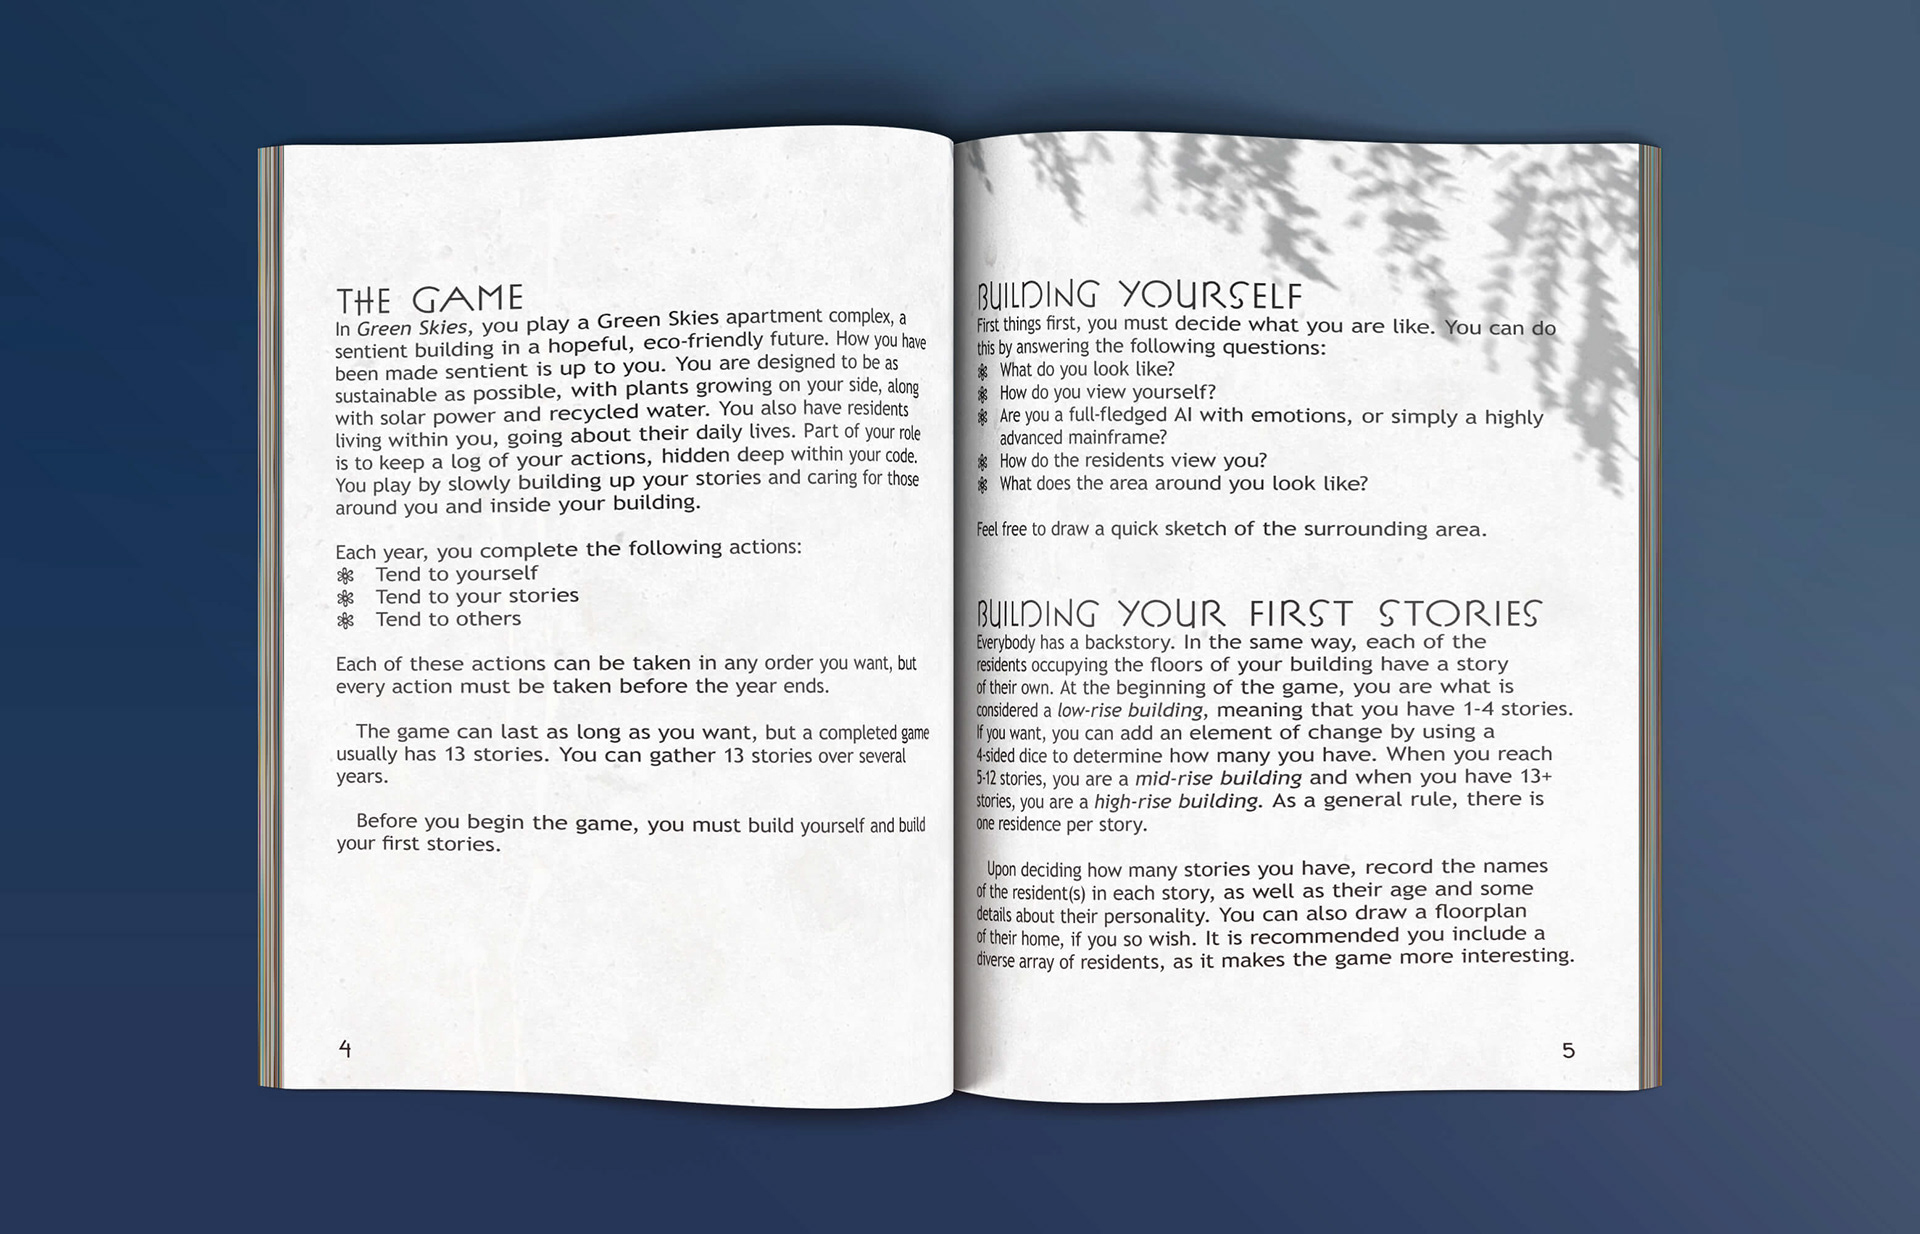 THE GAME
In Green Skies, you play a Green Skies apartment complex, a
sentient building in a hopeful, eco-friendly future. How you have
been made sentient is up to you. You are designed to be as
sustainable as possible, with plants growing on your side, along
with solar power and recycled water. You also have residents
living within you, going about their daily lives. Part of your role
is to keep a log of your actions, hidden deep within your code.
You play by slowly building up your stories and caring for those
around you and inside your building.
Each year, you complete the following actions:
Tend to yourself
Tend to your stories
Tend to others
Each of these actions can be taken in any order you want, but
every action must be taken before the year ends.
The game can last as long as you want, but a completed game
usually has 13 stories. You can gather 13 stories over several
years.
Before you begin the game, you must build yourself and build
your first stories.
4
BUILDING YOURSELF
First things first, you must decide what you are like. You can do
this by answering the following questions:
What do you look like?
How do you view yourself?
Are you a full-fledged AI with emotions, or simply a highly
advanced mainframe?
How do the residents view you?
What does the area around you look like?
Feel free to draw a quick sketch of the surrounding area.
BUILDING YOUR FIRST STORIES
Everybody has a backstory. In the same way, each of the
residents occupying the floors of your building have a story
of their own. At the beginning of the game, you are what is
considered a low-rise building, meaning that you have 1-4 stories.
If you want, you can add an element of change by using a
4-sided dice to determine how many you have. When you reach
5-12 stories, you are a mid-rise building and when you have 13+
stories, you are a high-rise building. As a general rule, there is
one residence per story.
Upon deciding how many stories you have, record the names
of the resident(s) in each story, as well as their age and some
details about their personality. You can also draw a floorplan
of their home, if you so wish. It is recommended you include a
diverse array of residents, as it makes the game more interesting.
5